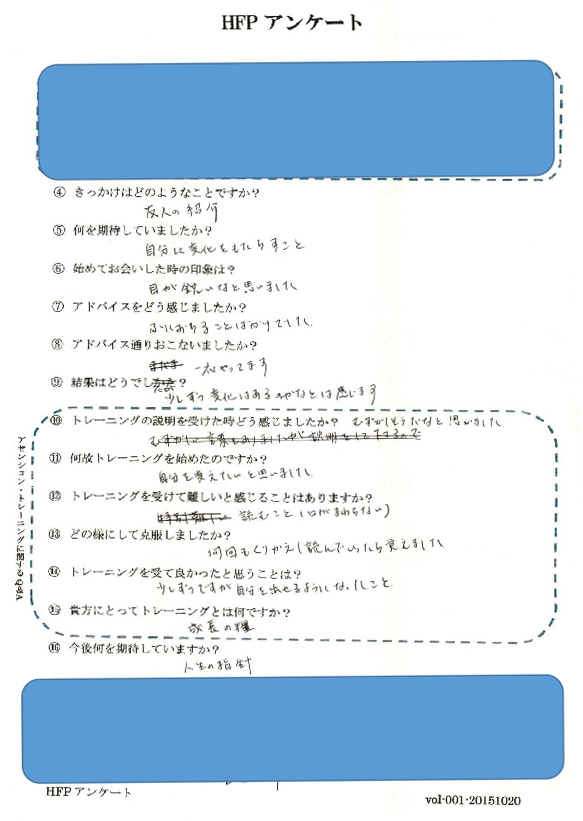 HFP アンケート
④ きっかけはどのようなことですか？
友人の紹介
⑤ 何を期待していましたか？
自分に変化をもたらすこと
⑥ 始めてお会いした時の印象は？
目が鋭いなと思いました
⑦ アドバイスをどう感じましたか？
ふにおちることばかりでした。
⑧ アドバイス通りおこないましたか？
一応やってます
⑨ 結果はどうでしたか？
少しずつ変化はあるのかなとは感じます
⑩ トレーニングの説明を受けた時どう感じましたか？ むずかしそうだなと思いました
むずかしい言葉もありましたが説明を
⑪ 何故トレーニングを始めたのですか？
自分を変えたいと思いました
⑫ トレーニングを受けて難しいと感じることはありますか？
読むこと（口がまわらない）
⑬ どの様にして克服しましたか？
何回もくりかえし読んでいったら覚えました
⑭ トレーニングを受て良かったと思うことは？
少しずつですが自分を出せるようになったこと
⑮ 貴方にとってトレーニングとは何ですか？
成長の糧
⑯ 今後何を期待していますか？
人生の指針
アセンション・トレーニングに関するQ&A
HFP アンケート
vol-001-20151020